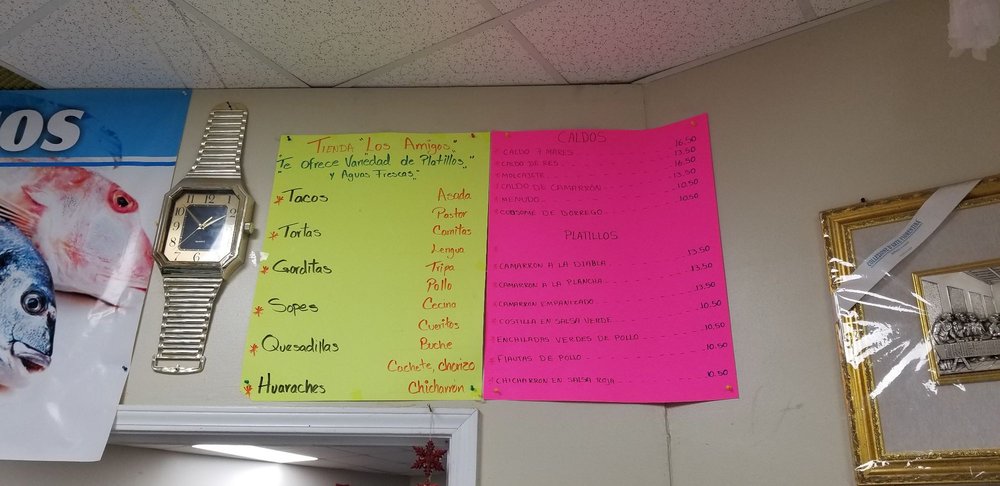 OS
TIENDA "LOS AMIGOS"
"TE OFRECE VARIEDAD DE PLATILLOS"
Y AGUAS FRESCAS"
TACOS
TORTAS
GORDITAS
SOPES
QUESADILLAS
HUARACHES
ASADA
PASTOR
CARNITAS
LENGUA
TRIPA
POLLO
CECINA
CUERITOS
BUCHE
CACHETE, CHORIZO
CHICHARRÓN
CALDOS
CALDO 7 MARES 16.50
CALDO DE RES 13.50
MOLCAJETE 16.50
CALDO DE CAMARRÓN 13.50
MENUDO 10.50
CUBSOME DE BORREGO 10.50
PLATILLOS
CAMARRON A LA DIABLA 13.50
CAMARRON A LA PLANCHA 13.50
CAMARRON EMPANIZADO 13.50
COSTILLA EN SALSA VERDE 10.50
ENCHILADAS VERDES DE POLLO 10.50
FLAUTAS DE POLLO 10.50
CHICHARRON EN SALSA ROJA 10.50